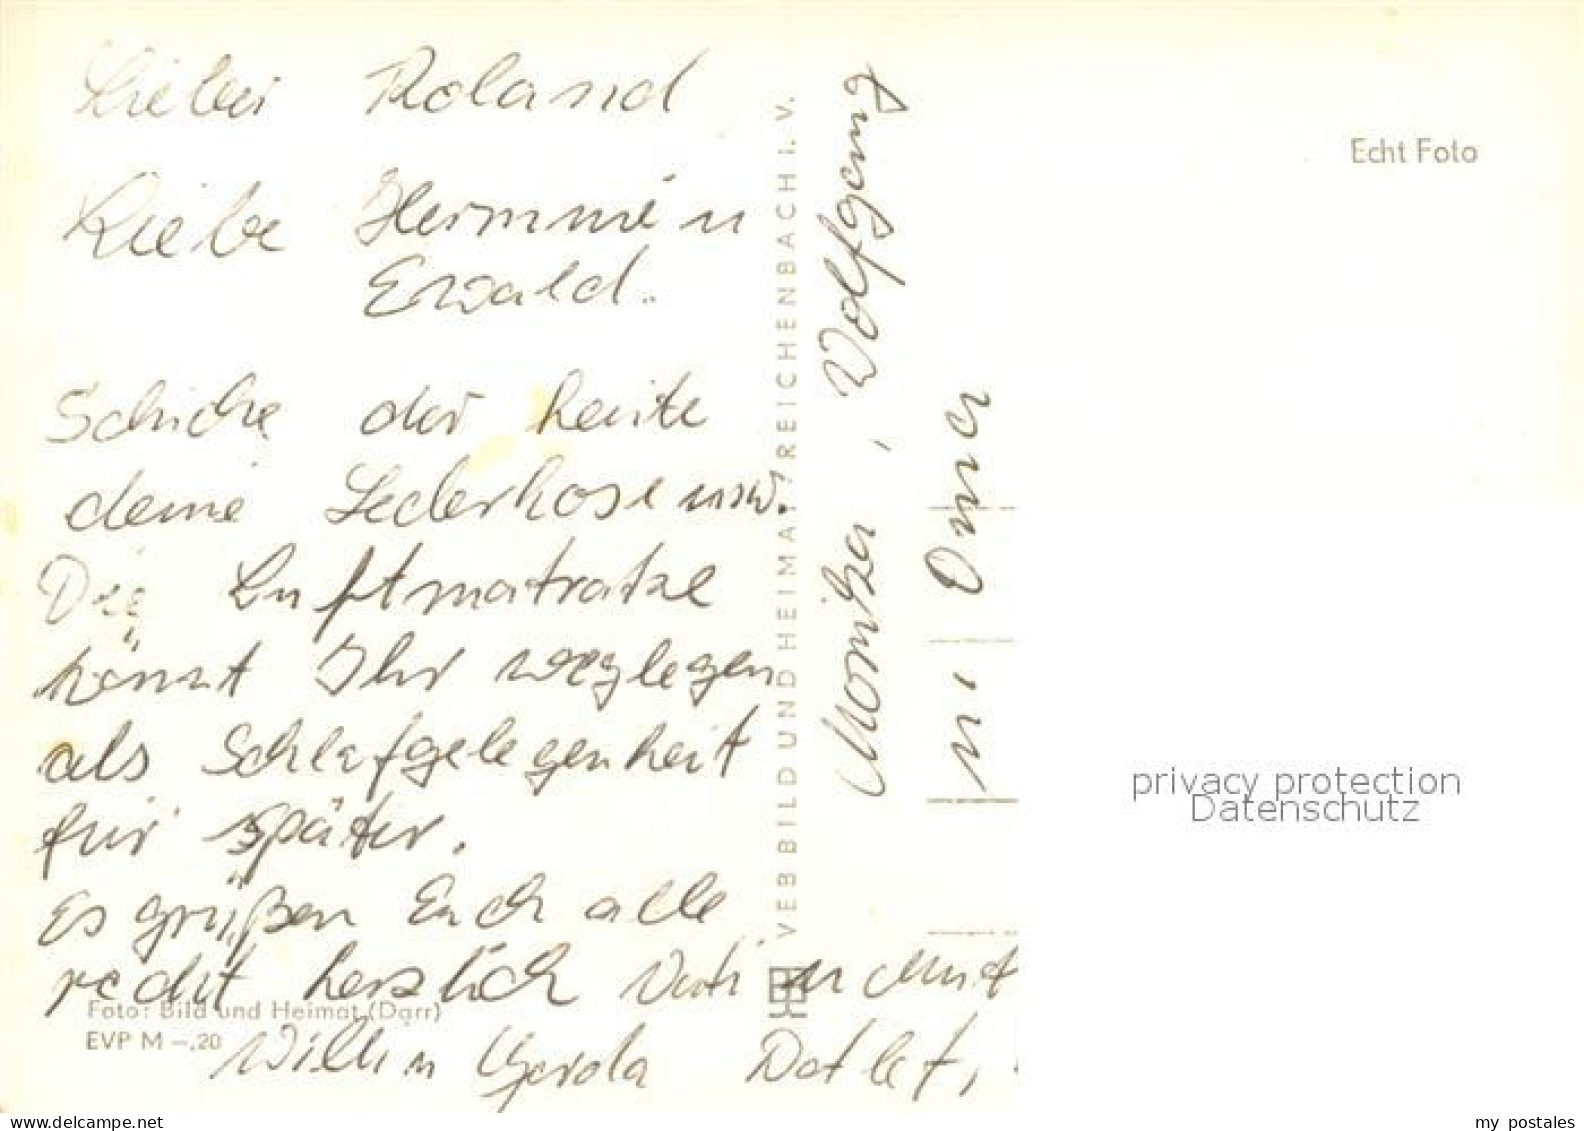 Lieber Roland
Liebe Hermine u
Ewald.
Schicke dir heute
deine Lederhose usw.
Die Luftmatratze
könnt Ihr weglegen
als Schlafgelegenheit
für später.
Es grüßen Euch alle
recht herzlich Vati u Mut
Willi u Gerda Detlef,
Monika, Wolfgang
u. Oma
VEB BILD UND HEIMAT REICHENBACH I. V.
Foto: Bild und Heimat (Darr)
EVP M –,20
Echt Foto
privacy protection
Datenschutz
www.delcampe.net
my_postales